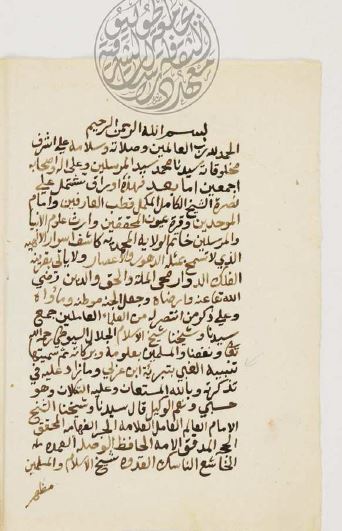 بسم الله الرحمن الرحيم
الحمد لله رب العالمين وصلاته وسلامه على اشرف
مخلوقاته سيدنا محمد سيد المرسلين وعلى اله وصحابه
اجمعين اما بعد فهذه اوراق تشتمل على
نصرة الشيخ الكامل المكمل قطب العارفين وامام
الموحدين وقرة عيون المحققين وارث علوم الانبيا
والمرسلين خاتم الولاية المحمدية كاشف اسرار الالهيه
الذي لا تسمح بمثله الدهور والاعصار ولا ياتي بقرينه
الفلك الدوار محي الملة والحق والدين رضي
الله تعا عنه وارضاه وجعل الجنة موطنه وماواه
وعلى ذكر من انتصر له من العلماء العاملين جمع
سيدنا وشيخنا شيخ الاسلام الجلال السيوطي
ونفعنا والمسلمين بعلومه وبركاته تم سميتها
تنبيه الغبي بتبرية ابن عربي وما زاد عليه في
تذكرته وبالله المستعان وعليه التكلان وهو
حسبي ونعم الوكيل قال سيدنا وشيخنا الشيخ
الامام العالم العامل العلامة الحبر الفهامه المحقق
الحجة المدقق الامة الحافظ الرحلة العمدة
الخاشع الناسك القدوة شيخ الاسلام والمسلمين
مظهر